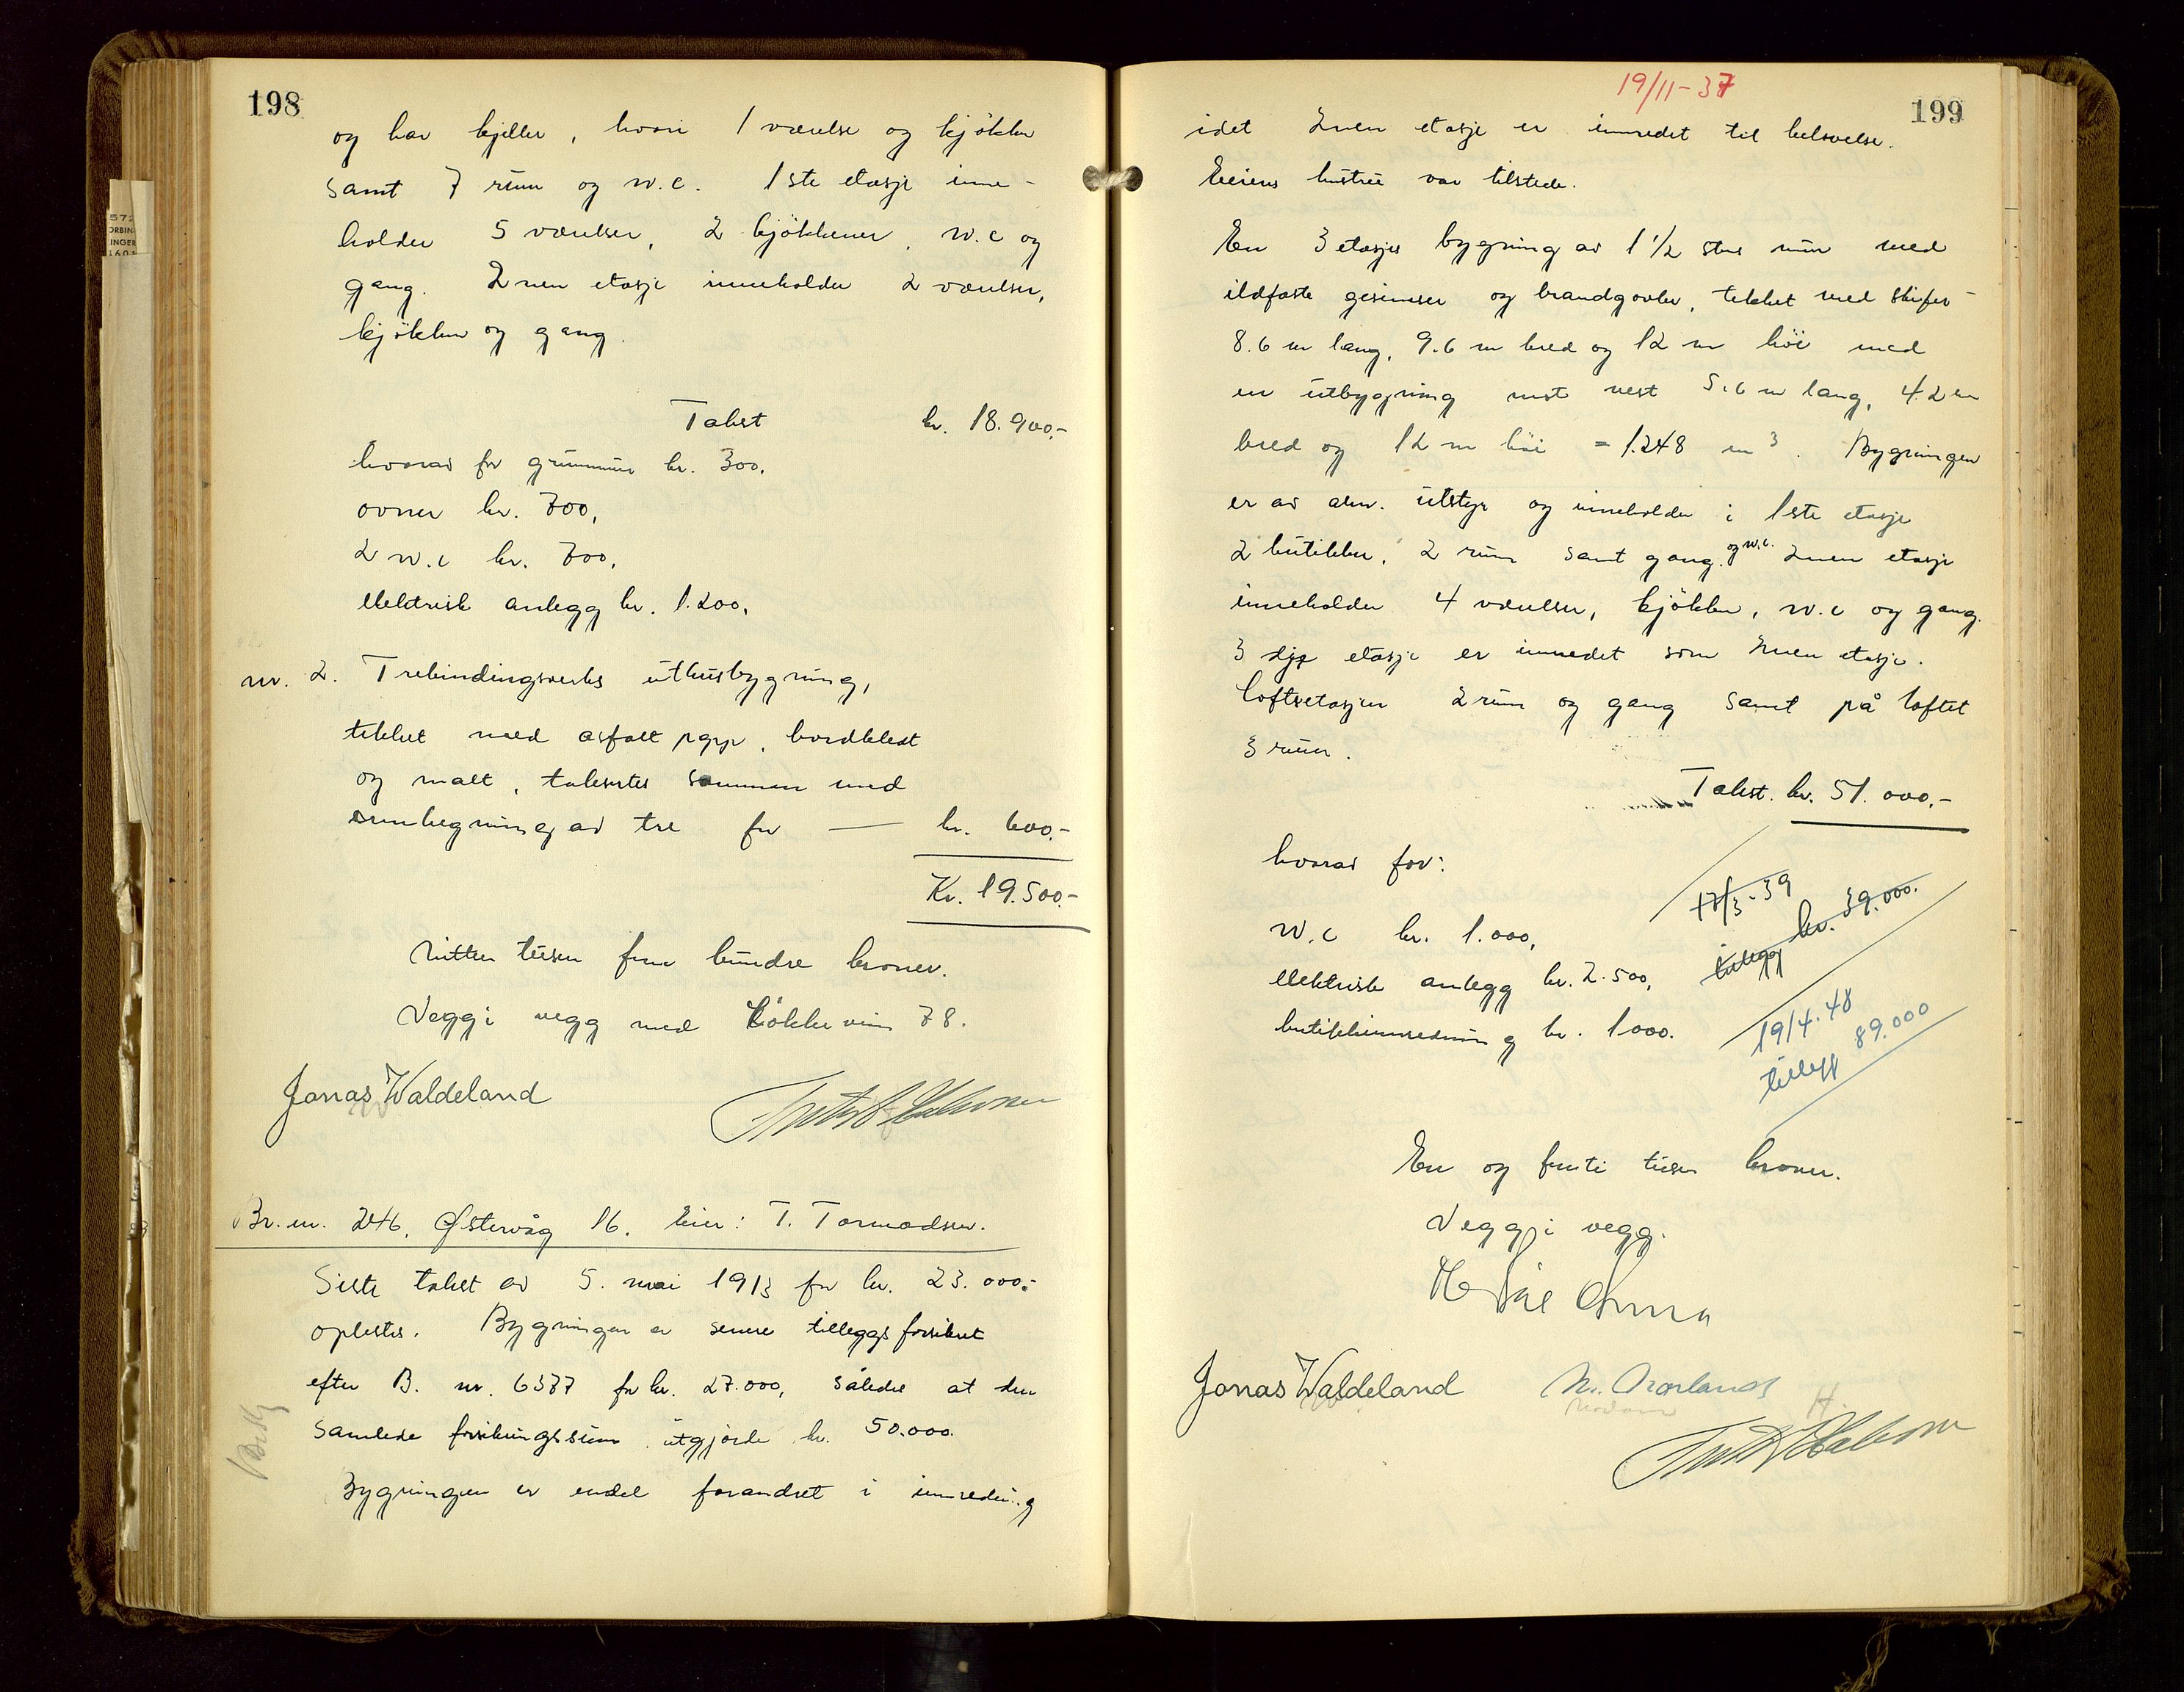 198
og har kjeller, hvori 1 værelse og kjøkken
samt 7 rum og w.c. 1ste etasje inne-
holder 5 værelser, 2 kjøkkener, w.c og
gang. 2nen etasje inneholder 2 værelser,
kjøkken og gang.
Takst kr. 18.900.-
hvorav for grunnmur kr. 300,
ovner kr. 700,
2 w.c kr. 700,
elektrisk anlegg kr. 1.200,
nr. 2. Trebindingsverks uthusbygning,
tekket med asfalt papp, bordkledt
og malt, takseres sammen med
innhegning av tre for — kr. 600.-
Kr. 19.500.-
Nitten tusen fem hundre kroner.
Vegg i vegg med Løkkevein 78.
Jonas Waldeland
Br. nr. 246, Østervåg 16. Eier: T. Tormodsen.
Siste takst av 5. mai 1913 for kr. 23.000.-
oplestes. Bygningen er senere tilleggsforsikret
efter B. nr. 6377 for kr. 27.000, således at den
samlede forsikringssum utgjorde kr. 50.000.
Bygningen er endel forandret i innredning
19/11-37
199
idet 2nen etasje er innredet til beboelse.
Eierens hustru var tilstede.
En 3 etasjes bygning av 1 1/2 stens mur med
ildfaste gesimser og brandgavler, tekket med skifer
8.6 m lang, 9.6 m bred og 12 m høi med
en utbygning mot vest 5.6 m lang, 4.2 m
bred og 12 m høi = 1.248 m3. Bygningen
er av alm. utstyr og inneholder i 1ste etasje
2 butikker, 2 rum samt gang. og w.c. 2nen etasje
inneholder 4 værelser, kjøkken, w.c og gang.
3 dje etasje er innredet som 2nen etasje.
Loftsetasjen 2 rum og gang samt på loftet
3 rum.
Takst. kr. 51.000.-
hvorav for:
17/3-39
tillegg kr. 39.000.
w.c kr. 1.000,
elektrisk anlegg kr. 2.500,
butikkinnredning kr. 1000.
19/4.48
tillegg 89.000
En og femti tusen kroner.
Vegg i vegg.
Jonas Waldeland